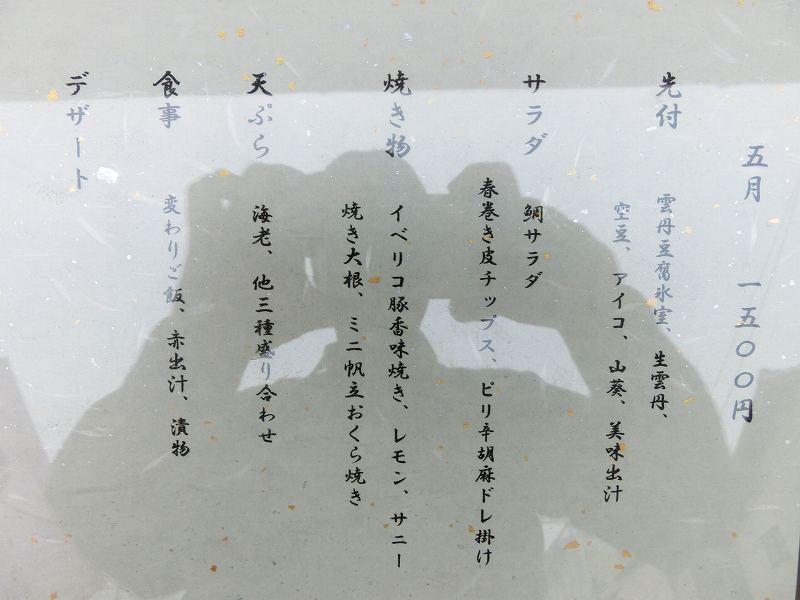 五月 一五〇〇円
先付
雲丹豆腐氷室、生雲丹、
空豆、アイコ、山葵、美味出汁
サラダ
鯛サラダ
春巻き皮チップス、ピリ辛胡麻ドレ掛け
焼き物
イベリコ豚香味焼き、レモン、サニー
焼き大根、ミニ帆立おくら焼き
天ぷら
海老、他三種盛り合わせ
食事
変わりご飯、赤出汁、漬物
デザート